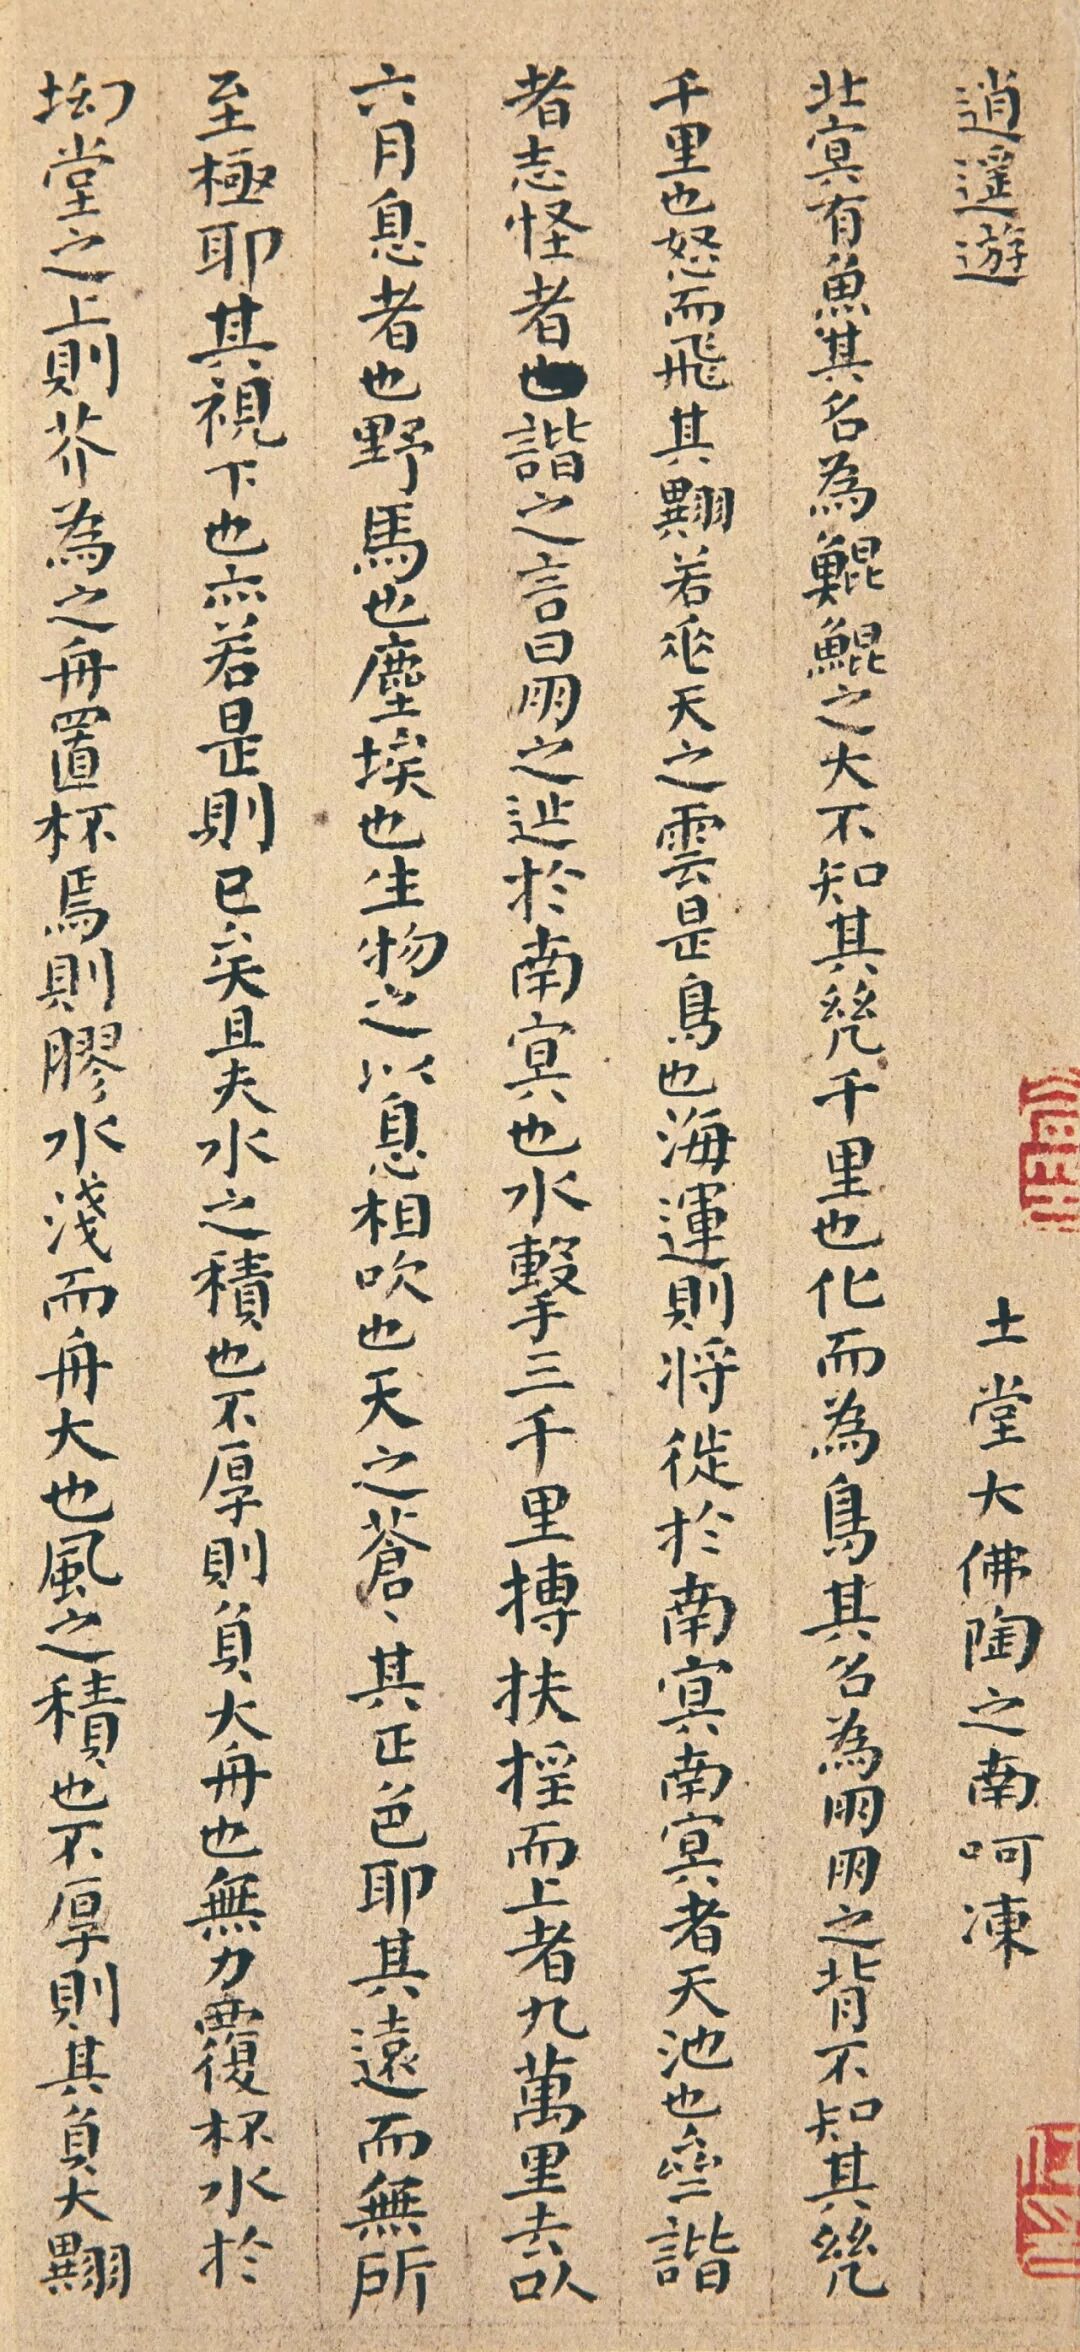 逍遙遊
土堂大佛陶之南呵凍
北冥有魚其名為鯤鯤之大不知其幾千里也化而為鳥其名為朋朋之背不知其幾
千里也怒而飛其翼若垂天之雲是鳥也海運則將徙於南冥南冥者天池也齊諧
者志怪者也諧之言曰朋之徙於南冥也水擊三千里摶扶搖而上者九萬里去以
六月息者也野馬也塵埃也生物之以息相吹也天之蒼、其正色耶其遠而無所
至極耶其視下也亦若是則已矣且夫水之積也不厚則負大舟也無力覆杯水於
坳堂之上則芥為之舟置杯焉則膠水淺而舟大也風之積也不厚則其負大翼